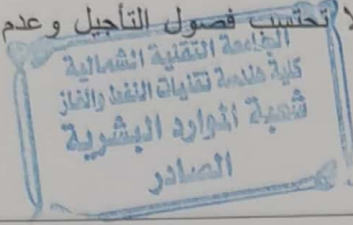 لا تحتسب فصول التأجيل وعدم
الجامعة التقنية الشمالية
كلية هندسة تقنيات النفط والغاز
شعبة الموارد البشرية
الصادر